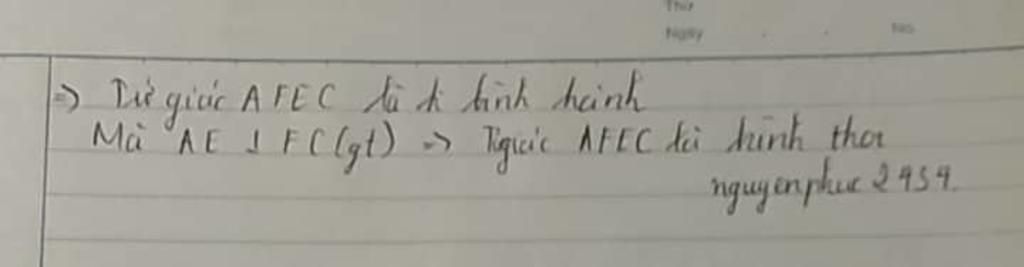 Thứ
Ngày No.
=> Tứ giác AFEC là h hình hành
Mà AE ⊥ FC (gt) => Tgiác AFEC là hình thoi
nguyenphuc2454.